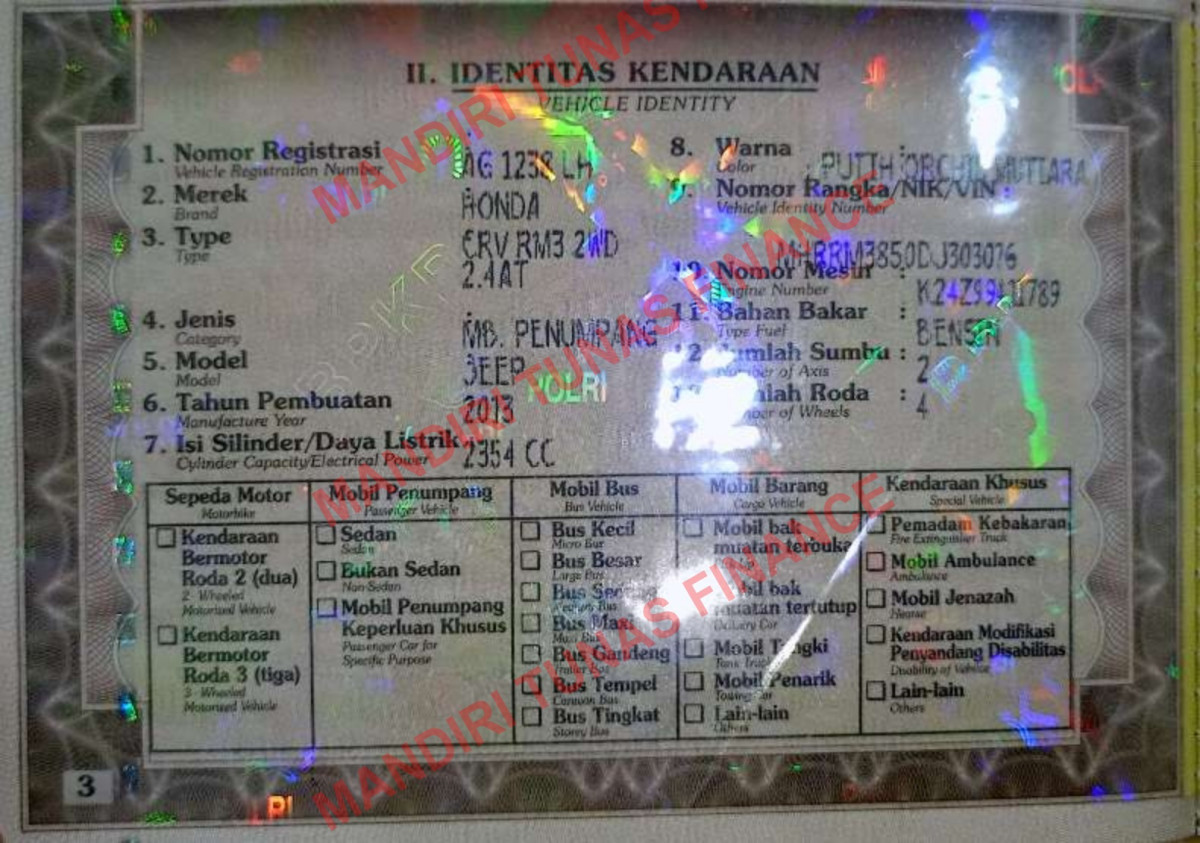 II. IDENTITAS KENDARAAN
VEHICLE IDENTITY
1. Nomor Registrasi : AG 1238 LH
Vehicle Registration Number
2. Merek HONDA
Brand
3. Type CRV RM3 2WD
Type 2.4AT
4. Jenis : MB. PENUMPANG
Category
5. Model JEEP
Model
6. Tahun Pembuatan 2013
Manufacture Year
7. Isi Silinder/Daya Listrik 2354 CC
Cylinder Capacity/Electrical Power
8. Warna : PUTIH ORCHID MUTIARA
Color
9. Nomor Rangka/NIK/VIN :
Vehicle Identity Number
MHRRM3850DJ303076
10. Nomor Mesin :
Engine Number
11. Bahan Bakar : BENSIN
Type Fuel
12. Jumlah Sumbu : 2
Number of Axis
13. Jumlah Roda : 4
Number of Wheels
POLRI
Sepeda Motor
Motorbike
Kendaraan
Bermotor
Roda 2 (dua)
2 - Wheeled
Motorized Vehicle
Kendaraan
Bermotor
Roda 3 (tiga)
3 - Wheeled
Motorized Vehicle
Mobil Penumpang
Passenger Vehicle
Sedan
Sedan
Bukan Sedan
Non-Sedan
Mobil Penumpang
Keperluan Khusus
Passenger Car for
Specific Purpose
Mobil Bus
Bus Vehicle
Bus Kecil
Micro Bus
Bus Besar
Large Bus
Bus
Bus Maxi
Maxi Bus
Bus Gandeng
Trailer Bus
Bus Tempel
Caravan Bus
Bus Tingkat
Storey Bus
Mobil Barang
Cargo Vehicle
Mobil bak
muatan terbuka
Mobil bak
muatan tertutup
Delivery Car
Mobil Tangki
Tank Truck
Mobil Penarik
Towing Car
Lain-lain
Others
Kendaraan Khusus
Special Vehicle
Pemadam Kebakaran
Fire Extinguisher Truck
Mobil Ambulance
Ambulance
Mobil Jenazah
Hearse
Kendaraan Modifikasi
Penyandang Disabilitas
Disability of Vehicle
Lain-lain
Others
3
RI
MANDIRI TUNAS FINANCE
MANDIRI TUNAS FINANCE
MANDIRI TUNAS FINANCE